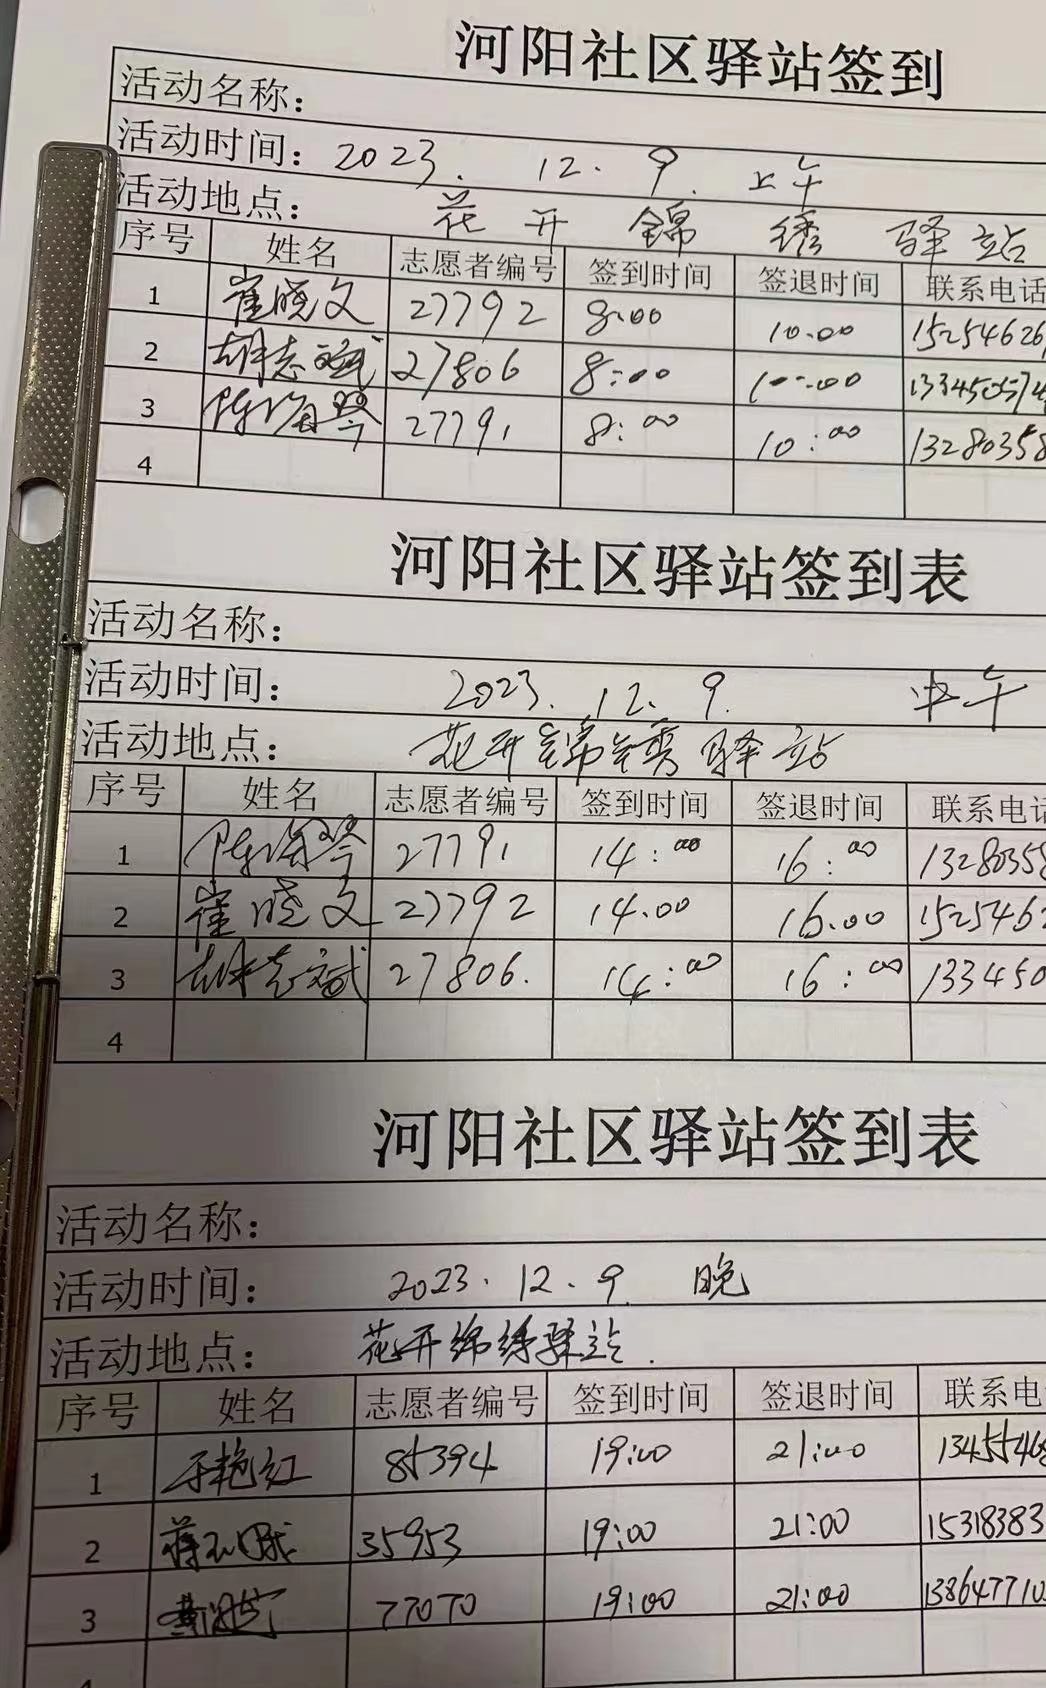 河阳社区驿站签到
活动名称：
活动时间：2023. 12. 9. 上午
活动地点： 花开锦绣驿站
序号 姓名 志愿者编号 签到时间 签退时间 联系电话
1 崔晓文 27792 8:00 10:00 15254626
2 胡志斌 27806 8:00 10:00 133450574
3 陈海琴 27791 8:00 10:00 13280358
4
河阳社区驿站签到表
活动名称：
活动时间： 2023. 12. 9. 中午
活动地点： 花开锦绣驿站
序号 姓名 志愿者编号 签到时间 签退时间 联系电话
1 陈海琴 27791 14:00 16:00 13280358
2 崔晓文 27792 14.00 16.00 1525462
3 胡志斌 27806. 14:00 16:00 133450
4
河阳社区驿站签到表
活动名称：
活动时间： 2023. 12. 9. 晚
活动地点： 花开绵绣驿站.
序号 姓名 志愿者编号 签到时间 签退时间 联系电
1 于艳红 85394 19:00 21:00 13455468
2 35953 19:00 21:00 15318383
3 77070 19:00 21:00 138647710
4